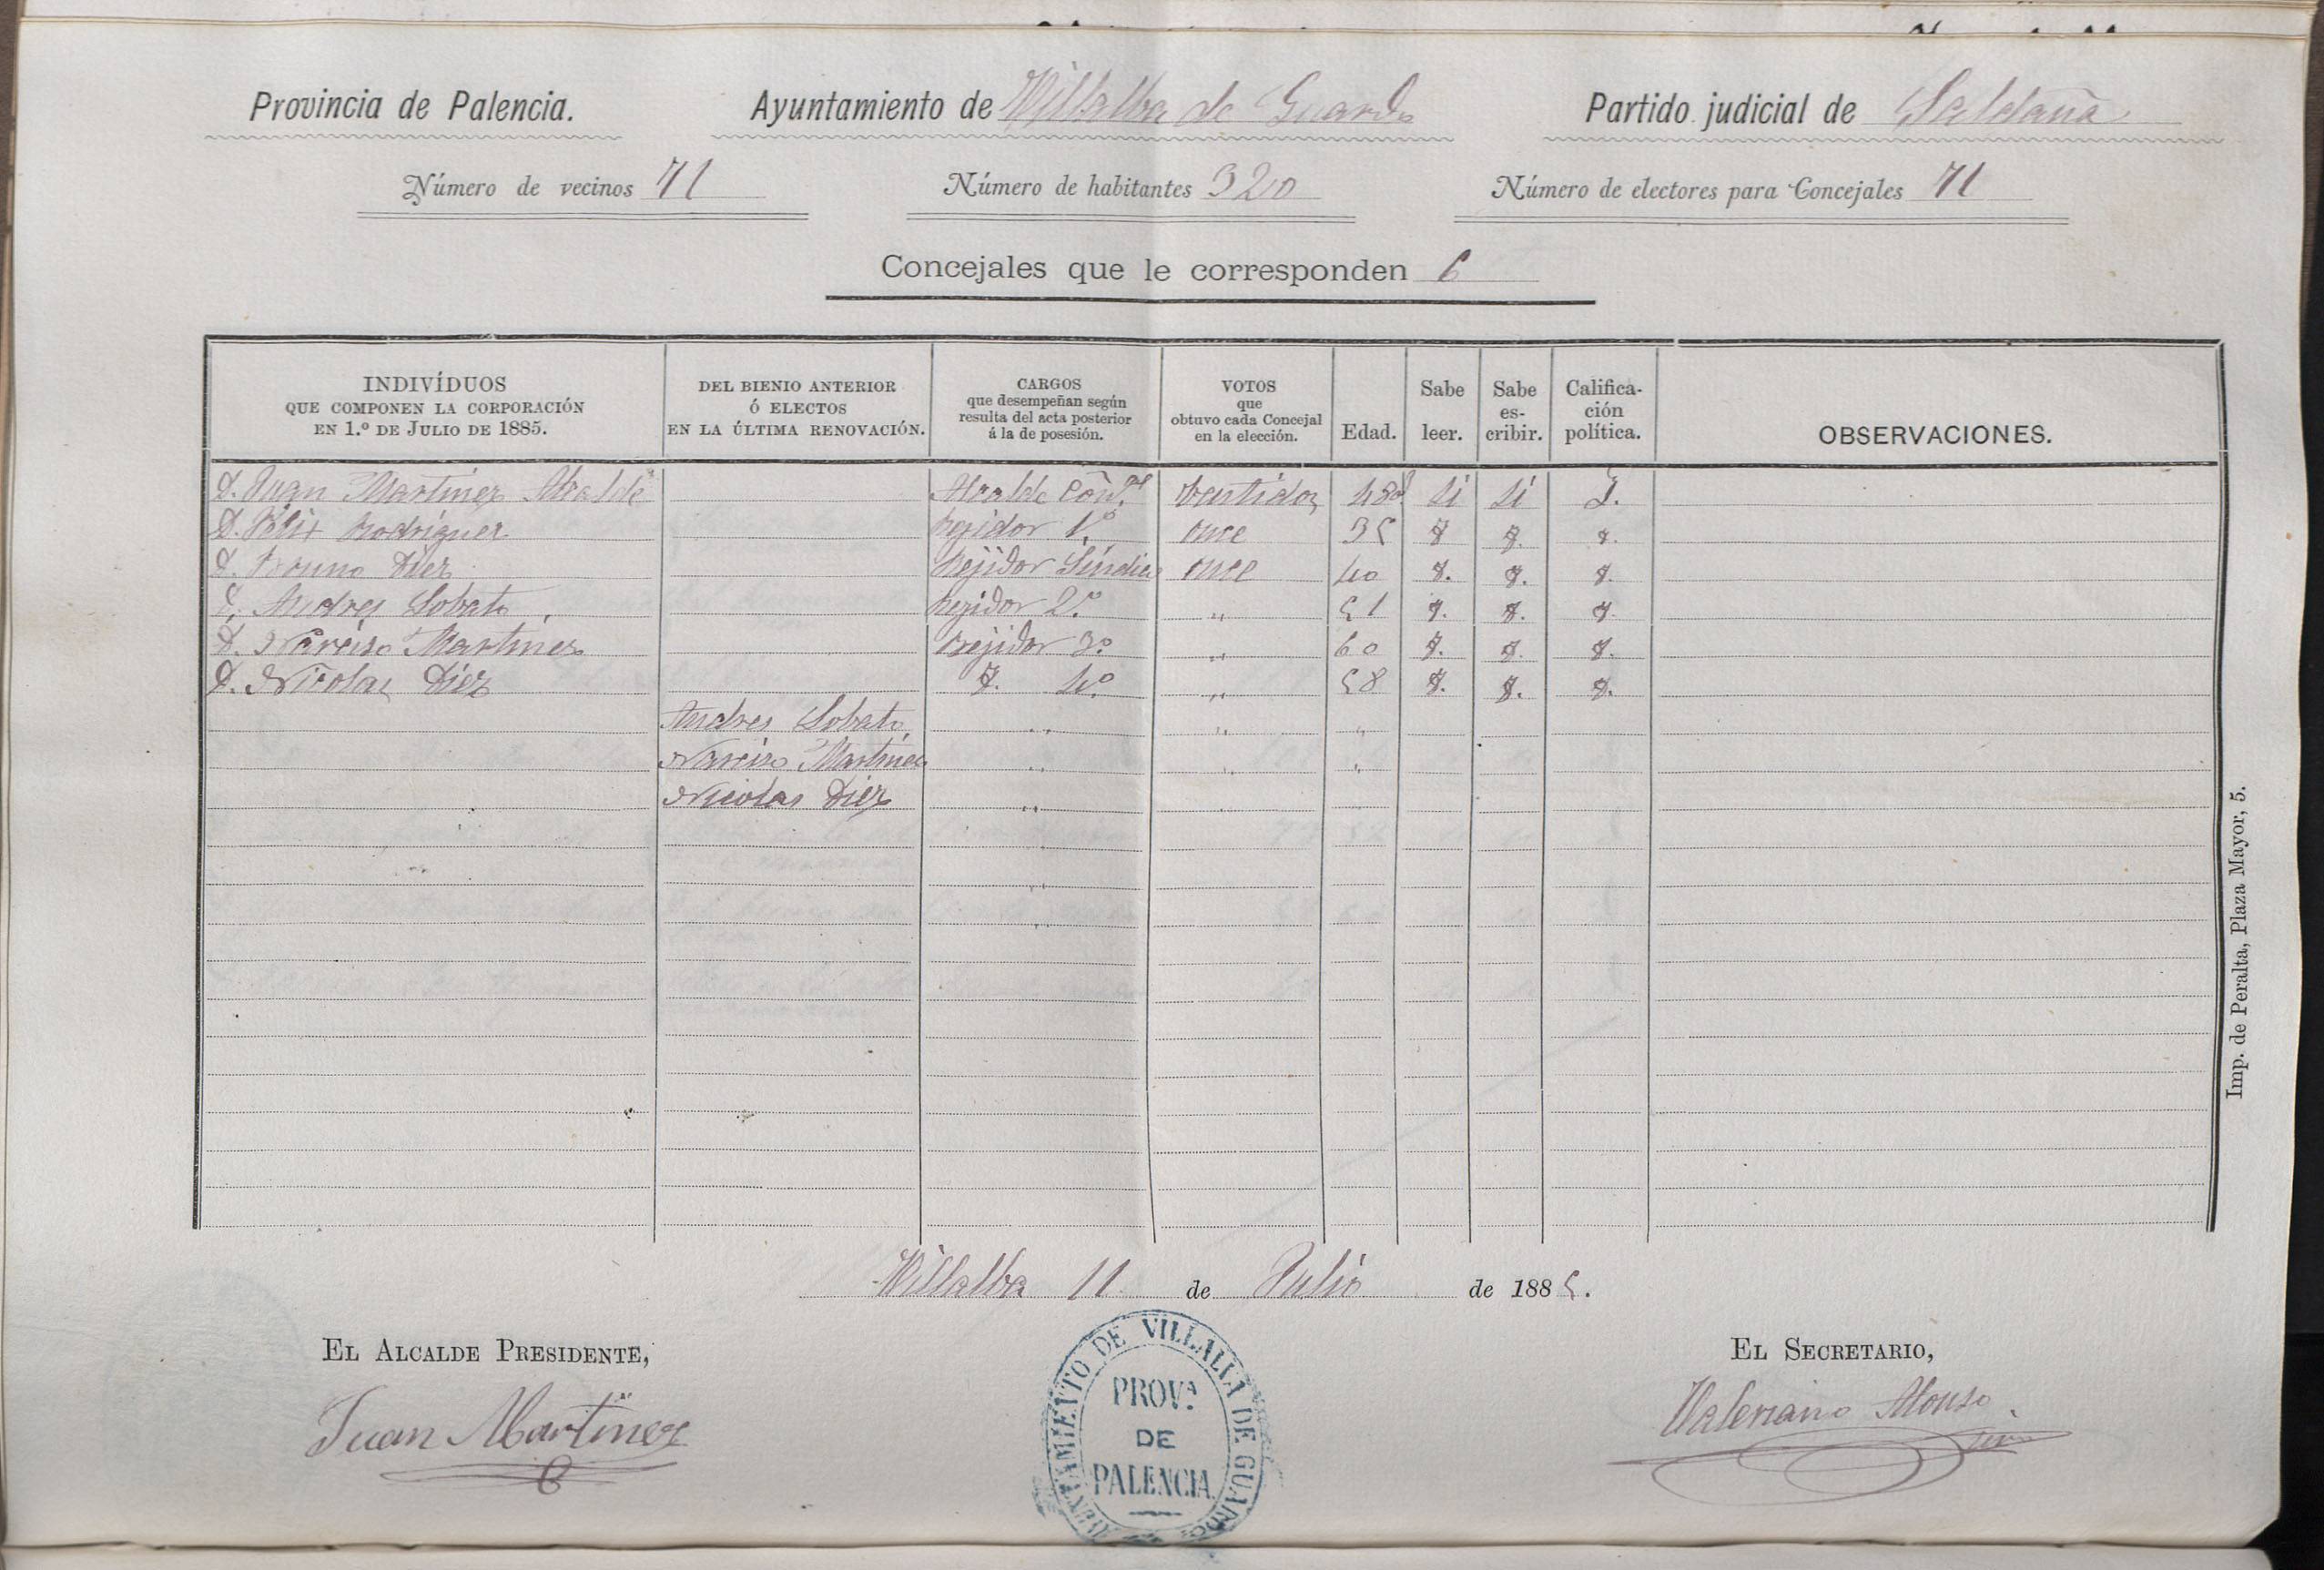 Provincia de Palencia. Ayuntamiento de Villalba de Guardo Partido judicial de Saldaña
Número de vecinos 71 Número de habitantes 320 Número de electores para Concejales 71
Concejales que le corresponden 6
INDIVÍDUOS QUE COMPONEN LA CORPORACIÓN EN 1.º DE JULIO DE 1885. DEL BIENIO ANTERIOR Ó ELECTOS EN LA ÚLTIMA RENOVACIÓN. CARGOS que desempeñan según resulta del acta posterior á la de posesión. VOTOS que obtuvo cada Concejal en la elección. Edad. Sabe leer. Sabe es-cribir. Califica-ción política. OBSERVACIONES.
D. Juan Martinez Alcalde Alcalde Con.al Veintidos 48 Si Si
D. Felix Rodriguez Regidor 1.º once 35 " " "
D. Bruno Diez Regidor Síndico once 40 " " "
D. Andres Lobato Regidor 2.º " 51 " " "
D. Narciso Martinez Regidor 3.º " 60 " " "
D. Nicolas Diez " 4.º " 58 " " "
Andres Lobato " " "
Narciso Martinez " " "
Nicolas Diez "
Villalba 11 de Julio de 1885.
EL ALCALDE PRESIDENTE, EL SECRETARIO,
Juan Martinez Valeriano Alonso
AYUNTAMIENTO DE VILLALBA DE GUARDO
PROV.ª
DE
PALENCIA.
Imp. de Peralta, Plaza Mayor, 5.